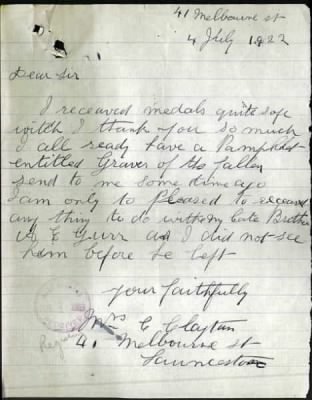 41 Melbourne st
4 July 1922
Dear Sir
I receaved medals quite safe
witch I thank you so much
I all ready have a Pamphlet
entitled Graves of the fallen
send to me some time ago
I am only to pleased to receave
any thing to do with my Late Brother
A E Gurr as I did not see
him before he left
Yours faithfully
Mrs E Clayton
41 Melbourne st
Launceston